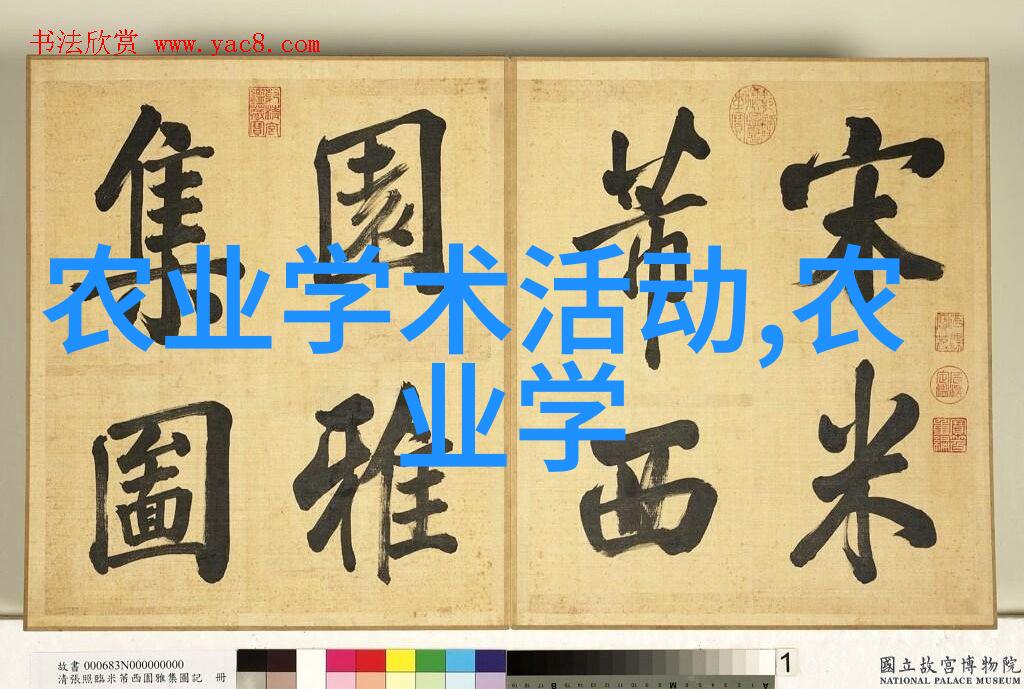 书法欣赏 www.yac8.com
宋米
芾西
園雅
集圖
农业学术活动,农
业学
故書 000683N000000000
清張照臨米芾西園雅集圖記 冊
1
國立故宮博物院
NATIONAL PALACE MUSEUM